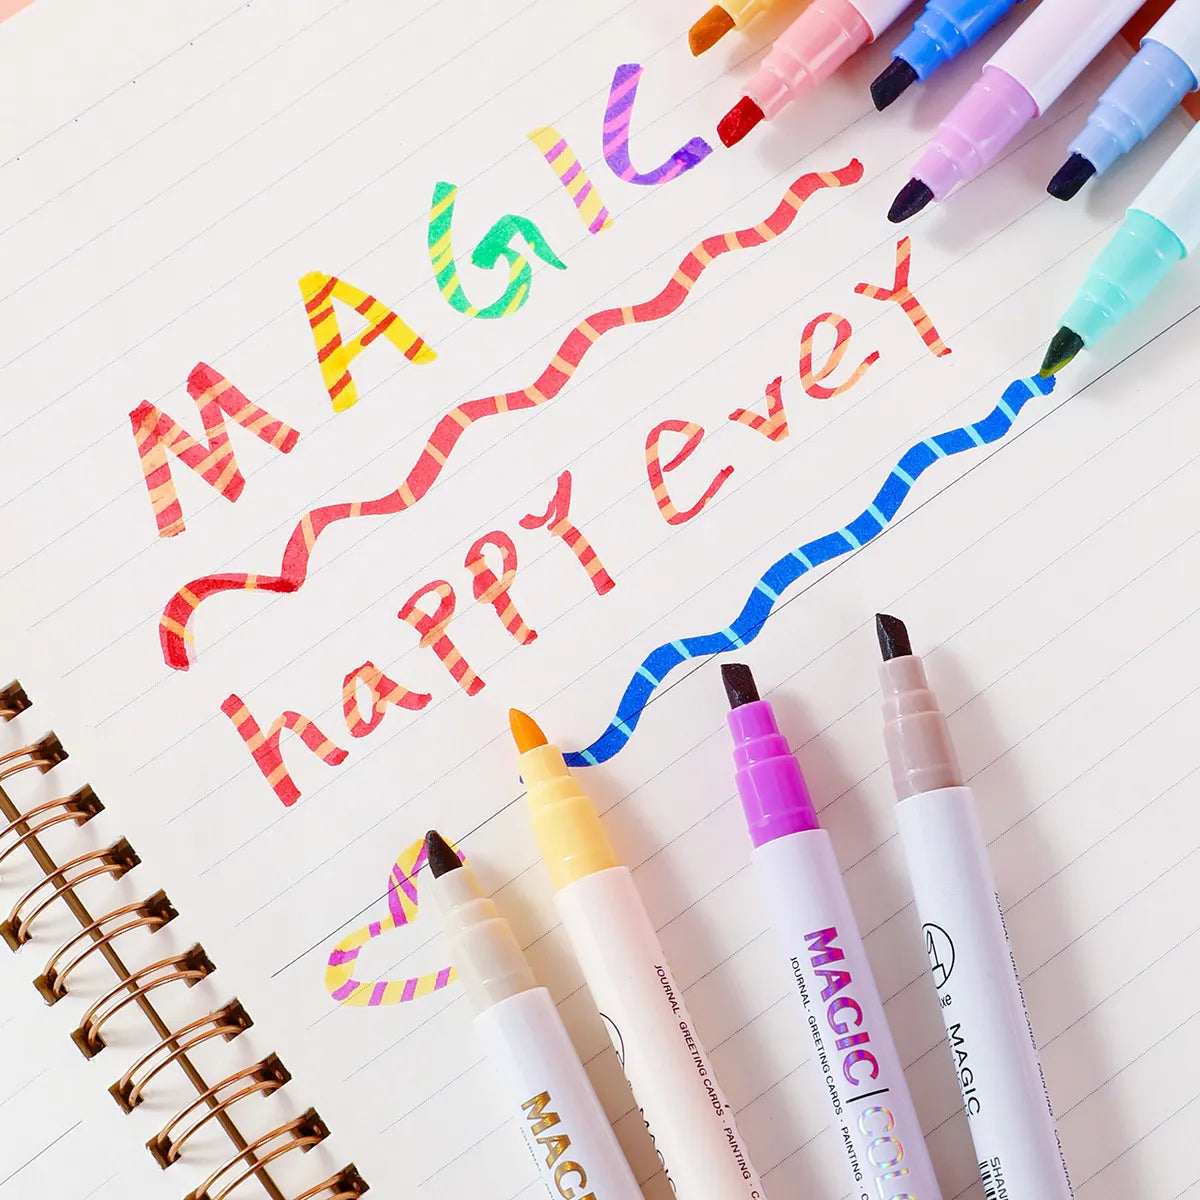 MAGIC
happy ever
MAGIC
JOURNAL · GREETING CARDS · PAINTING
MAGIC | COLO
JOURNAL · GREETING CARDS · PAINTING ·
MAGIC
JOURNAL · GREETING CARDS · PAINTING · CALLIGRA